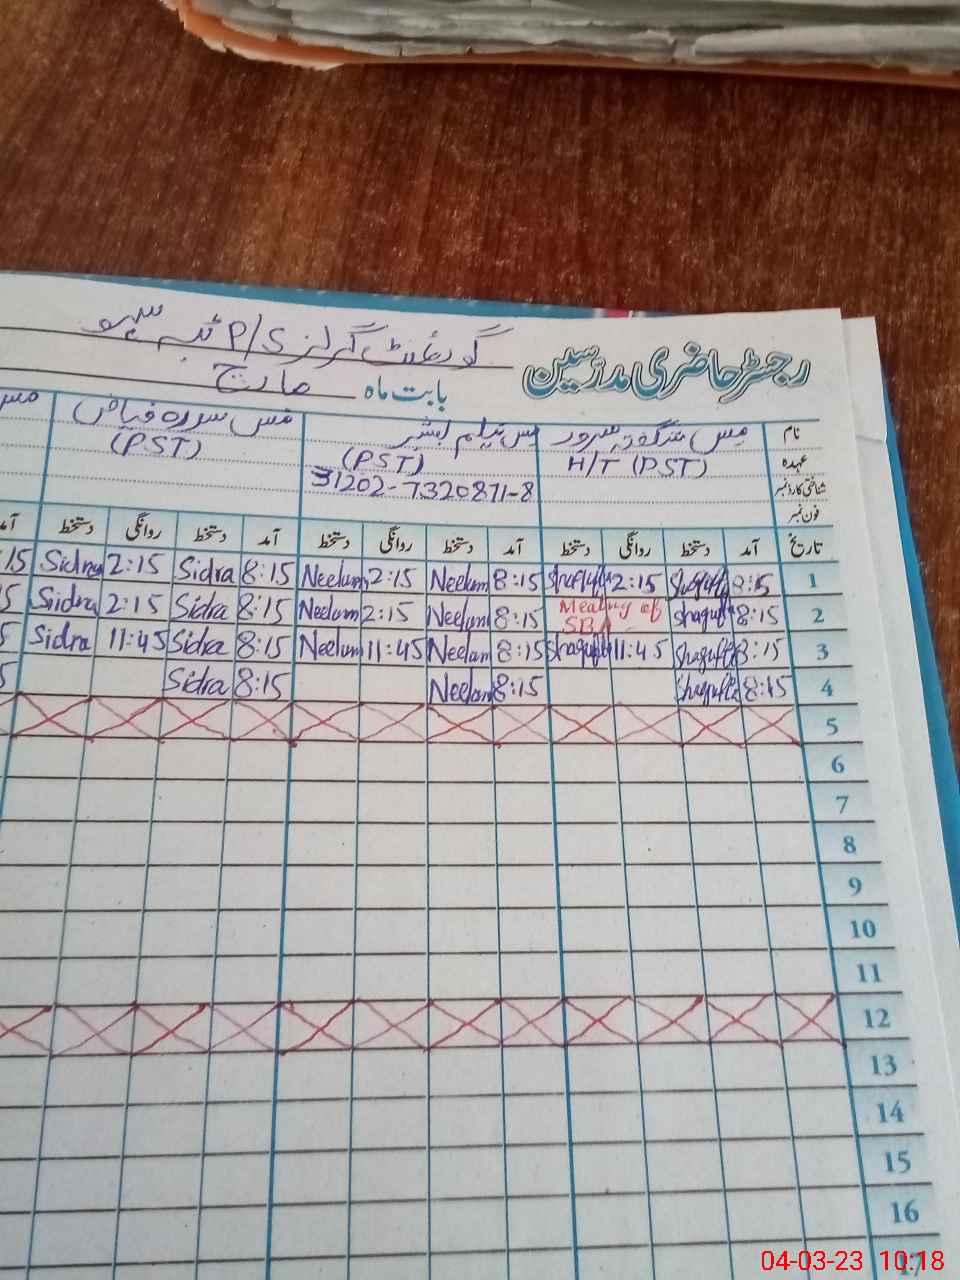 گورنمنٹ گرلز P/S ٹبہ
رجسٹر حاضری مدرسین
بابت ماہ مارچ
نام مس شگفتہ سرور مس نیلم مس سدرہ فیاض مس
عہدہ H/T (PST) (PST) (PST)
شناختی کارڈ نمبر 31202-7320871-8
فون نمبر
تاریخ آمد دستخط روانگی دستخط آمد دستخط روانگی دستخط آمد دستخط روانگی دستخط آمد
1 8:15 Shagufta 2:15 Shagufta 8:15 Neelum 2:15 Neelum 8:15 Sidra 2:15 Sidra 15
2 8:15 Shagufta Meeting of SBA 8:15 Neelum 2:15 Neelum 8:15 Sidra 2:15 Sidra 5
3 8:15 Shagufta 11:45 Shagufta 8:15 Neelum 11:45 Neelum 8:15 Sidra 11:45 Sidra 5
4 8:15 Shagufta 8:15 Neelum 8:15 Sidra 5
5
6
7
8
9
10
11
12
13
14
15
16
17
04-03-23 10:18